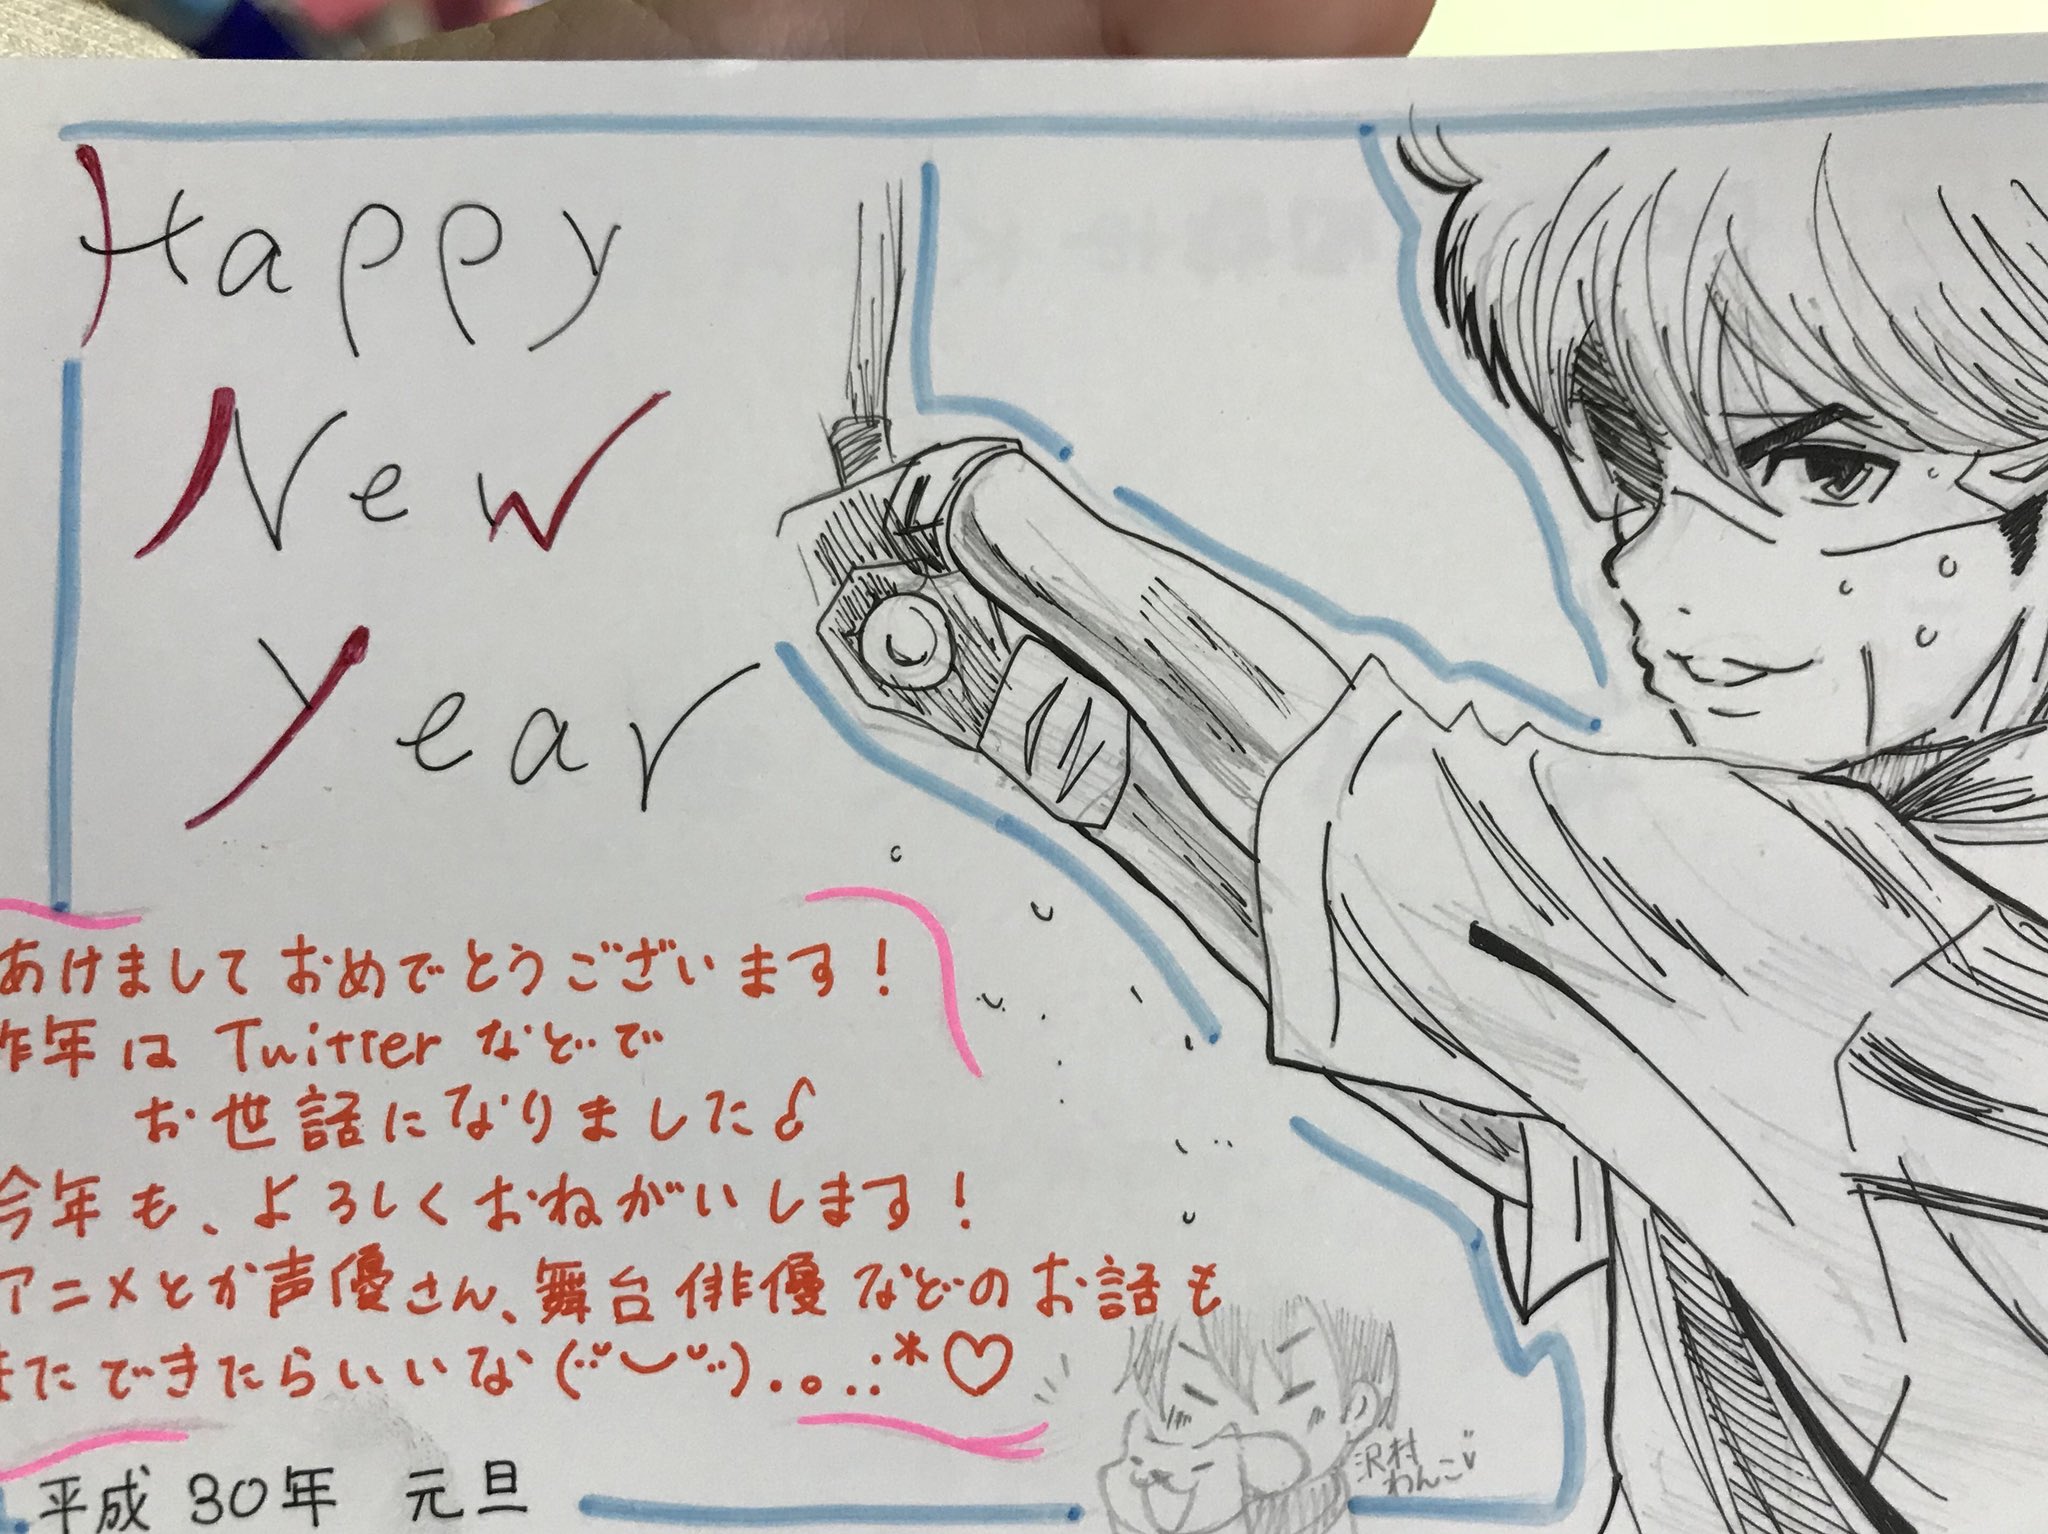 Happy
New
Year
あけましておめでとうございます!
昨年は Twitter などで
お世話になりました♪
今年も、よろしくおねがいします!
アニメとか声優さん、舞台俳優などのお話も
またできたらいいな(¨̮)．｡．:*♡
平成 30年 元旦
沢村
わんこ